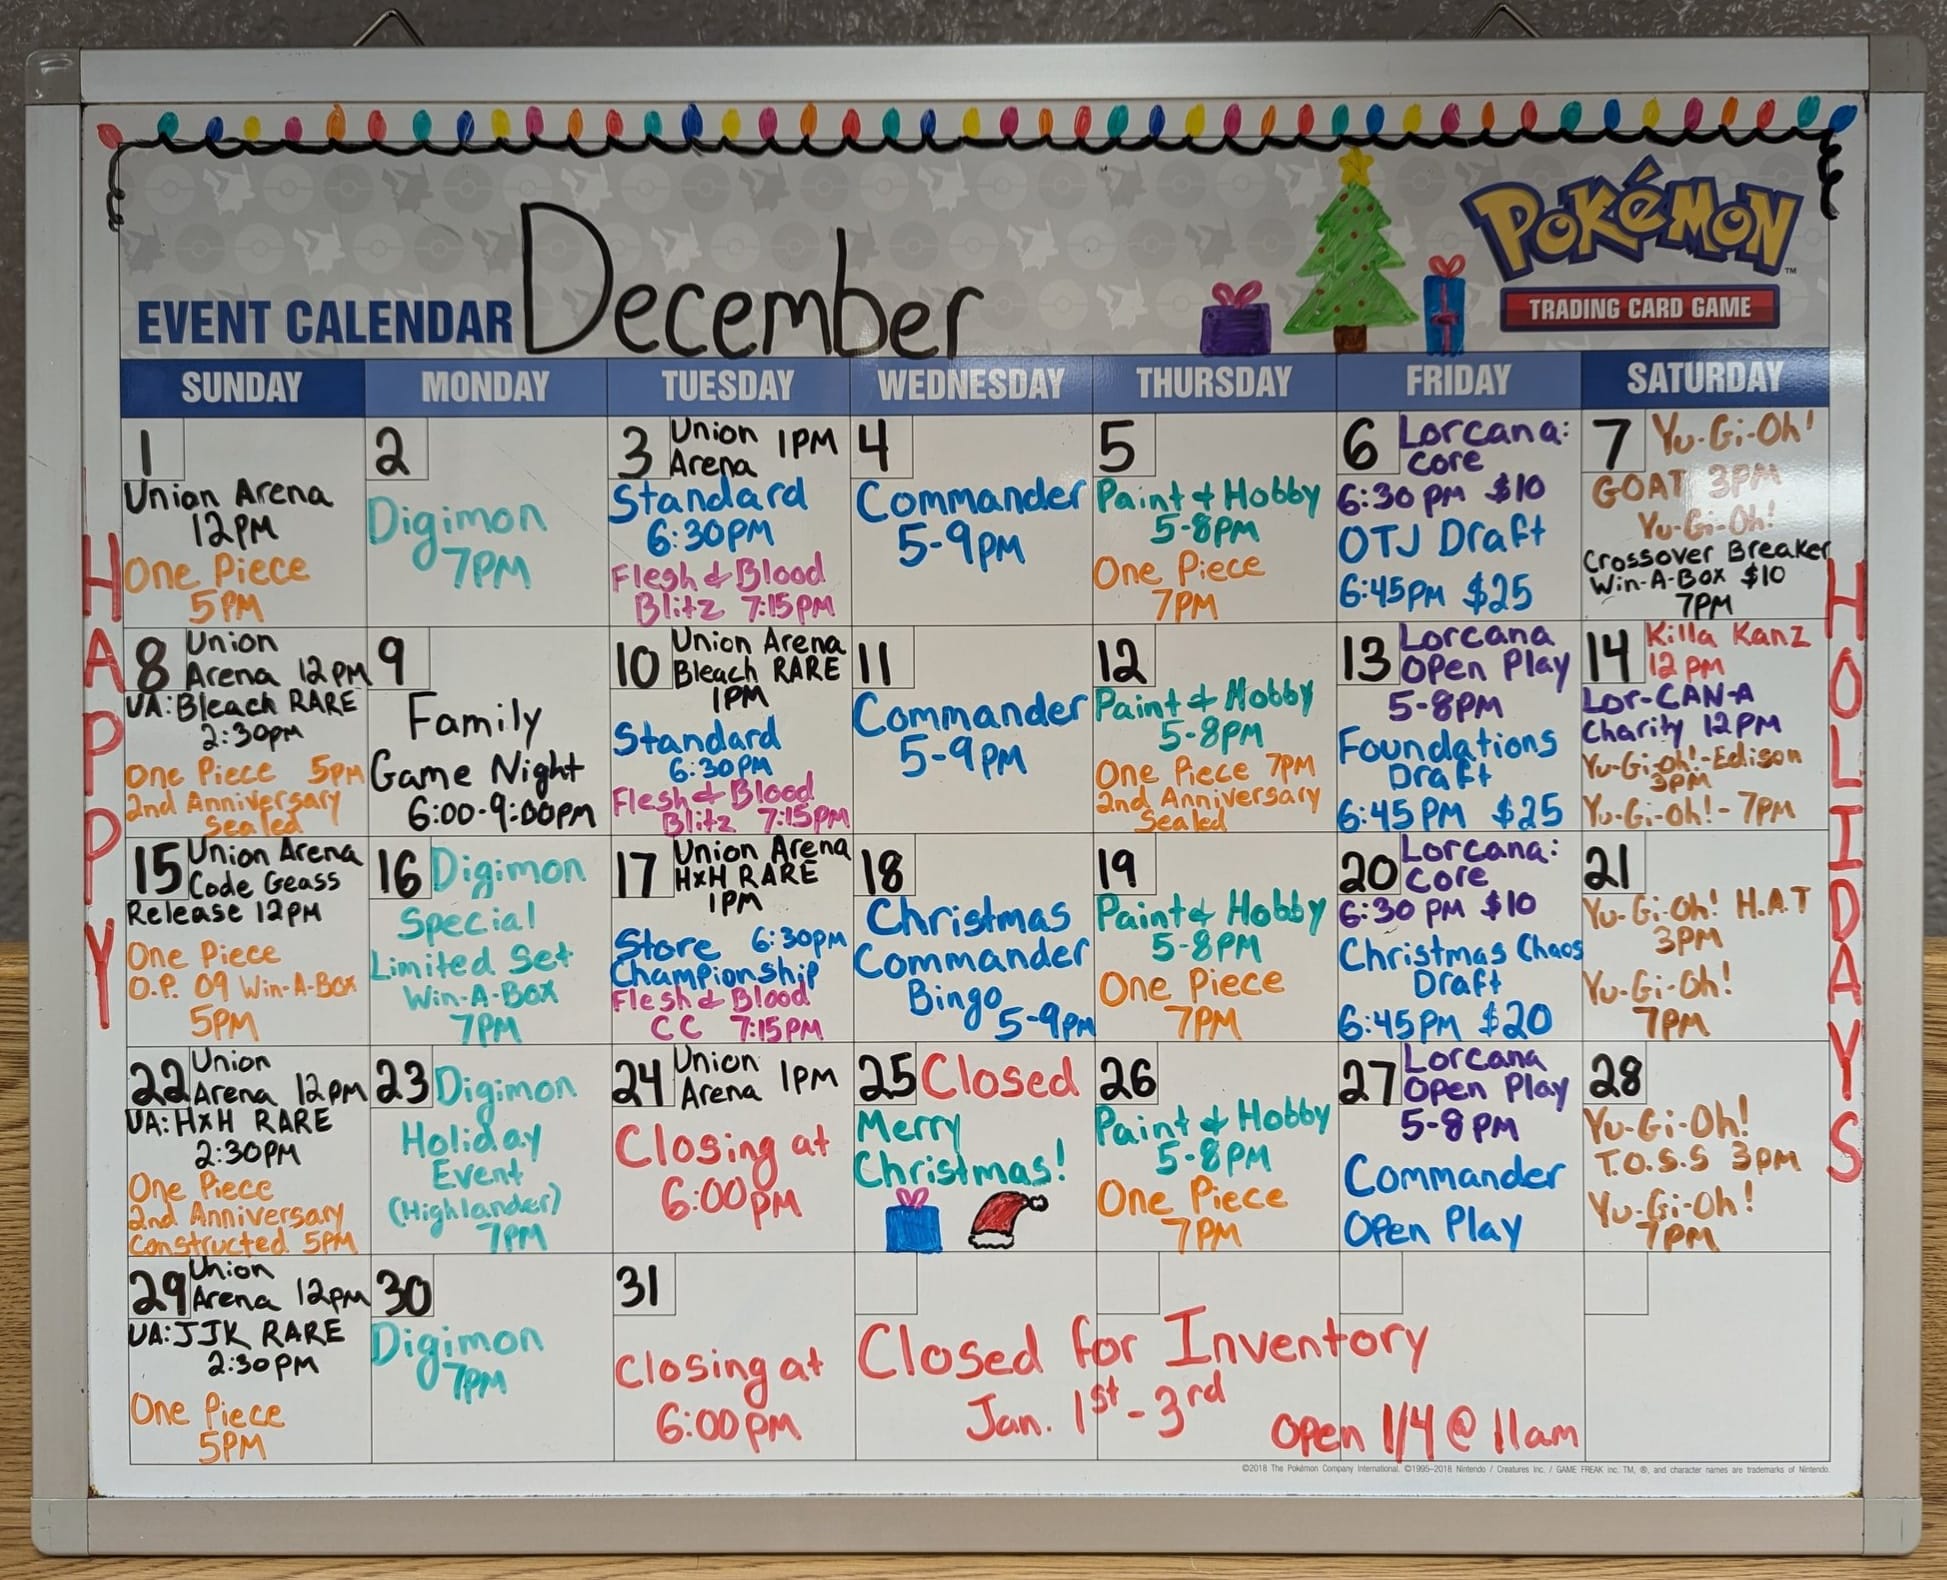 EVENT CALENDAR December
POKéMON™
TRADING CARD GAME
HAPPY
HOLIDAYS
SUNDAY MONDAY TUESDAY WEDNESDAY THURSDAY FRIDAY SATURDAY
1
Union Arena
12PM
One Piece
5PM
2
Digimon
7PM
3 Union Arena 1PM
Standard
6:30PM
Flesh & Blood
Blitz 7:15PM
4
Commander
5-9PM
5
Paint & Hobby
5-8PM
One Piece
7PM
6 Lorcana:
Core
6:30 PM $10
OTJ Draft
6:45PM $25
7 Yu-Gi-Oh!
GOAT 3PM
Yu-Gi-Oh!
Crossover Breaker
Win-A-Box $10
7PM
8 Union
Arena 12PM
UA: Bleach RARE
2:30PM
One Piece 5PM
2nd Anniversary
Sealed
9
Family
Game Night
6:00-9:00PM
10 Union Arena
Bleach RARE
1PM
Standard
6:30PM
Flesh & Blood
Blitz 7:15PM
11
Commander
5-9PM
12
Paint & Hobby
5-8PM
One Piece 7PM
2nd Anniversary
Sealed
13 Lorcana
Open Play
5-8PM
Foundations
Draft
6:45PM $25
14 Killa Kanz
12PM
Lor-CAN-A
Charity 12PM
Yu-Gi-Oh!-Edison
3PM
Yu-Gi-Oh!- 7PM
15 Union Arena
Code Geass
Release 12PM
One Piece
O.P. 09 Win-A-Box
5PM
16 Digimon
Special
Limited Set
Win-A-Box
7PM
17 Union Arena
HxH RARE
1PM
Store 6:30PM
Championship
Flesh & Blood
CC 7:15PM
18
Christmas
Commander
Bingo
5-9PM
19
Paint & Hobby
5-8PM
One Piece
7PM
20 Lorcana:
Core
6:30 PM $10
Christmas Chaos
Draft
6:45PM $20
21
Yu-Gi-Oh! H.A.T
3PM
Yu-Gi-Oh!
7PM
22 Union
Arena 12PM
UA: HxH RARE
2:30PM
One Piece
2nd Anniversary
Constructed 5PM
23 Digimon
Holiday
Event
(Highlander)
7PM
24 Union
Arena 1PM
Closing at
6:00PM
25 Closed
Merry
Christmas!
26
Paint & Hobby
5-8PM
One Piece
7PM
27 Lorcana
Open Play
5-8PM
Commander
Open Play
28
Yu-Gi-Oh!
T.O.S.S 3PM
Yu-Gi-Oh!
7PM
29 Union
Arena 12PM
UA: JJK RARE
2:30PM
One Piece
5PM
30
Digimon
7PM
31
Closing at
6:00PM
Closed for Inventory
Jan. 1st-3rd
Open 1/4 @ 11am
©2018 The Pokémon Company International. ©1995–2018 Nintendo / Creatures Inc. / GAME FREAK inc. TM, ®, and character names are trademarks of Nintendo.